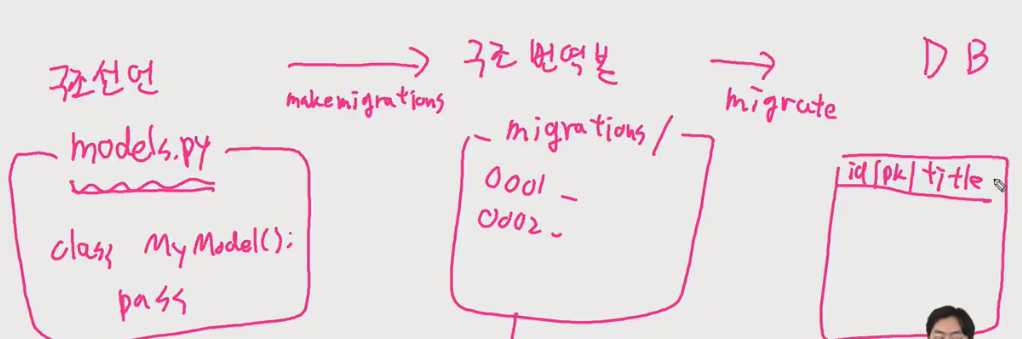 구조선언
makemigrations
구조 번역본
migrate
DB
models.py
class MyModel():
pass
migrations/
0001_
0002_
id|pk|title